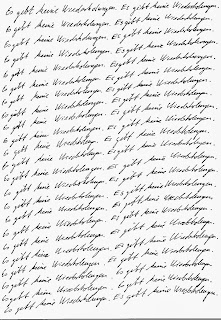 Es gibt keine Wiederholungen. Es gibt keine Wiederholungen.
Es gibt keine Wiederholungen. Es gibt keine Wiederholungen.
Es gibt keine Wiederholungen. Es gibt keine Wiederholungen.
Es gibt keine Wiederholungen. Es gibt keine Wiederholungen.
Es gibt keine Wiederholungen. Es gibt keine Wiederholungen.
Es gibt keine Wiederholungen. Es gibt keine Wiederholungen.
Es gibt keine Wiederholungen. Es gibt keine Wiederholungen.
Es gibt keine Wiederholungen. Es gibt keine Wiederholungen.
Es gibt keine Wiederholungen. Es gibt keine Wiederholungen.
Es gibt keine Wiederholungen. Es gibt keine Wiederholungen.
Es gibt keine Wiederholungen. Es gibt keine Wiederholungen.
Es gibt keine Wiederholungen. Es gibt keine Wiederholungen.
Es gibt keine Wiederholungen. Es gibt keine Wiederholungen.
Es gibt keine Wiederholungen. Es gibt keine Wiederholungen.
Es gibt keine Wiederholungen. Es gibt keine Wiederholungen.
Es gibt keine Wiederholungen. Es gibt keine Wiederholungen.
Es gibt keine Wiederholungen. Es gibt keine Wiederholungen.
Es gibt keine Wiederholungen. Es gibt keine Wiederholungen.
Es gibt keine Wiederholungen. Es gibt keine Wiederholungen.
Es gibt keine Wiederholungen. Es gibt keine Wiederholungen.